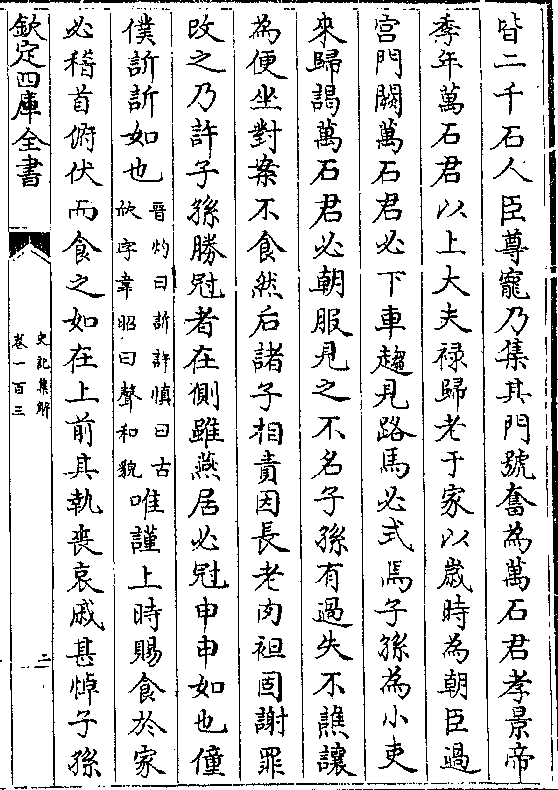 皆二千石人臣尊寵乃集其門號奮為萬石君孝景帝
季年萬石君以上大夫禄歸老于家以嵗時為朝臣過
宫門闕萬石君必下車趨見路馬必式焉子孫為小吏
來歸謁萬石君必朝服見之不名子孫有過失不譙讓
為便坐對案不食然后諸子相責因長老肉袒固謝罪
改之乃許子孫勝冠者在側雖燕居必冠申申如也僮
僕訢訢如也晉灼曰訢許慎曰古
欣字韋昭曰聲和貌唯謹上時賜食於家
必稽首俯伏而食之如在上前其執喪哀戚甚悼子孫
欽定四庫全書
史記集解
卷一百三
二